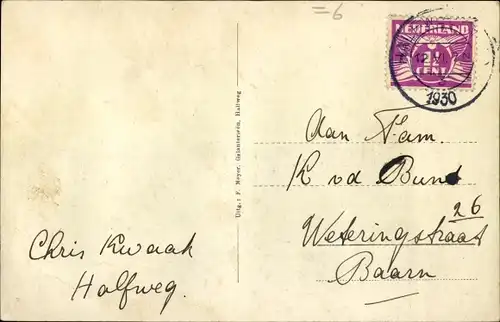 =6
NEDERLAND
CENT
1930
Uitg.: F. Meyer, Galanterieën, Halfweg
Aan Fam.
K v d Bunt
Weteringstraat 26
Baarn
Chris Kwaak
Halfweg.